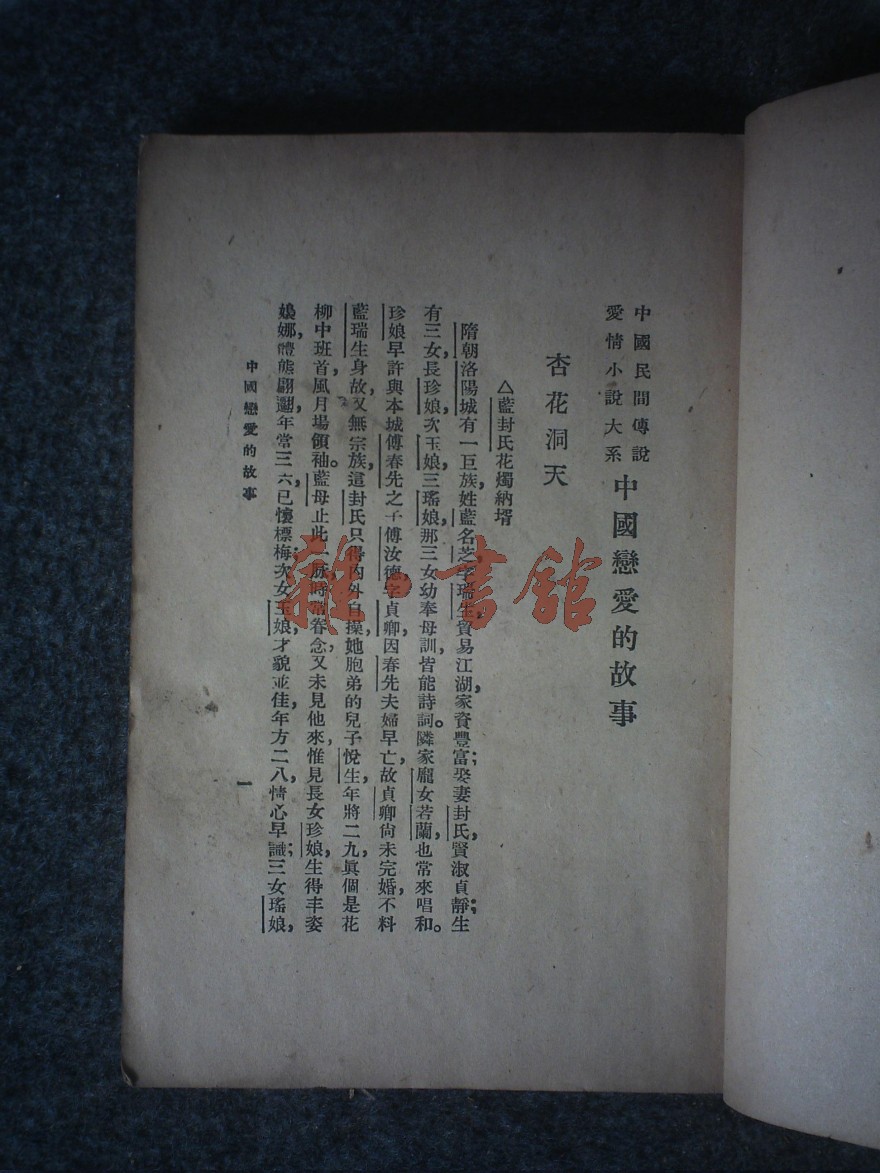 中國民間傳說
愛情小說大系
中國戀愛的故事
杏花洞天
△藍封氏花燭納壻
隋朝洛陽城有一巨族，姓藍名芝字瑞生，貿易江湖，家資豐富；娶妻封氏，賢淑貞靜；生
有三女，長珍娘，次玉娘，三瑤娘，那三女幼奉母訓，皆能詩詞。隣家龐女若蘭，也常來唱和。
珍娘早許與本城傅春先之子傅汝德，字貞卿，因春先夫婦早亡，故貞卿尙未完婚，不料
藍瑞生身故，又無宗族，這封氏只得內外自操，她胞弟的兒子悅生，年將二九，眞個是花
柳中班首，風月場領袖。藍母止此一脉，時常眷念，又未見他來，惟見長女珍娘，生得丰姿
嬝娜，體態翩翩，年當三六，已懷標梅；次女玉娘，才貌並佳，年方二八，情心早識；三女瑤娘，
中國戀愛的故事
一
雜·書館